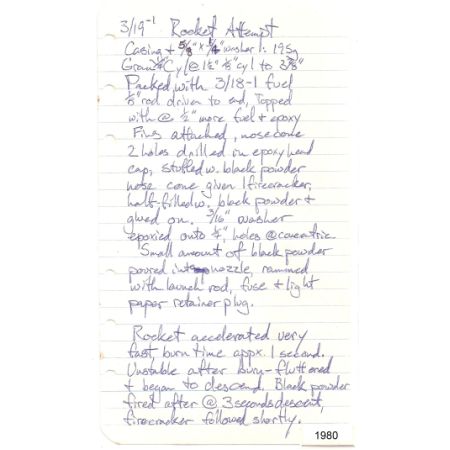 3/19-1 Rocket Attempt
Casing + 5/8" x 1/4" washer 1: 195g
Ground Cyl @ 1½" ⅛" cyl to 3⅜"
Packed with 3/18-1 fuel
⅛" rod driven to end, Topped
with @ ½" more fuel & epoxy
Fins attached, nosecone
2 holes drilled on epoxy head
cap, stuffed w. black powder
nose cone given 1 firecracker,
half-filled w. black powder &
glued on. 3/16" washer
epoxied onto ¼", holes @ concentric
Small amount of black powder
poured into nozzle, rammed
with launch rod, fuse & light
paper retainer plug.
Rocket accelerated very
fast burn time appx. 1 second.
Unstable after burn - fluttered
& began to descend. Black powder
fired after @ 3 seconds descent,
firecracker followed shortly.
1980